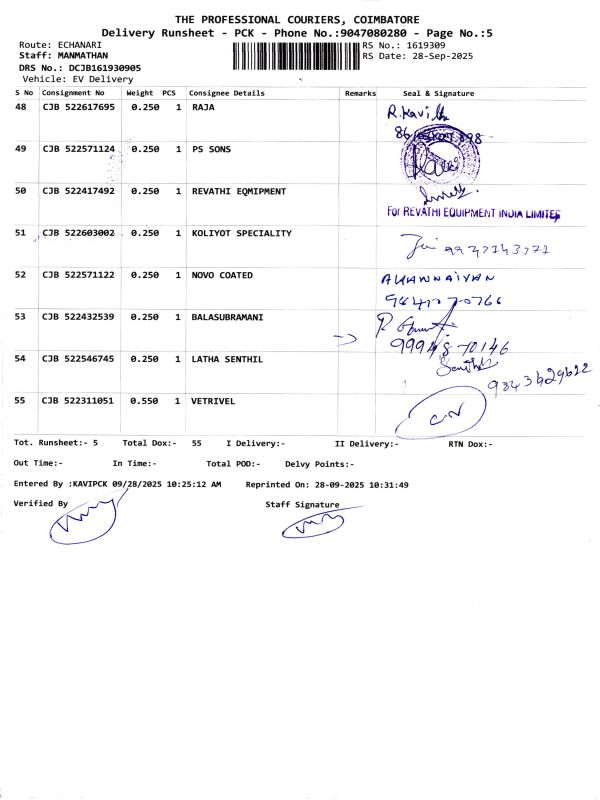 THE PROFESSIONAL COURIERS, COIMBATORE
Delivery Runsheet - PCK - Phone No.:9047080280 - Page No.:5
Route: ECHANARI RS No.: 1619309
Staff: MANMATHAN RS Date: 28-Sep-2025
DRS No.: DCJB161930905
Vehicle: EV Delivery
S No Consignment No Weight PCS Consignee Details Remarks Seal & Signature
48 CJB 522617695 0.250 1 RAJA R.Kavi
49 CJB 522571124 0.250 1 PS SONS
50 CJB 522417492 0.250 1 REVATHI EQMIPMENT
For REVATHI EQUIPMENT INDIA LIMITED
51 CJB 522603002 0.250 1 KOLIYOT SPECIALITY
52 CJB 522571122 0.250 1 NOVO COATED
53 CJB 522432539 0.250 1 BALASUBRAMANI
99948 70146
54 CJB 522546745 0.250 1 LATHA SENTHIL
9843629622
55 CJB 522311051 0.550 1 VETRIVEL
Tot. Runsheet:- 5 Total Dox:- 55 I Delivery:- II Delivery:- RTN Dox:-
Out Time:- In Time:- Total POD:- Delvy Points:-
Entered By :KAVIPCK 09/28/2025 10:25:12 AM Reprinted On: 28-09-2025 10:31:49
Verified By Staff Signature